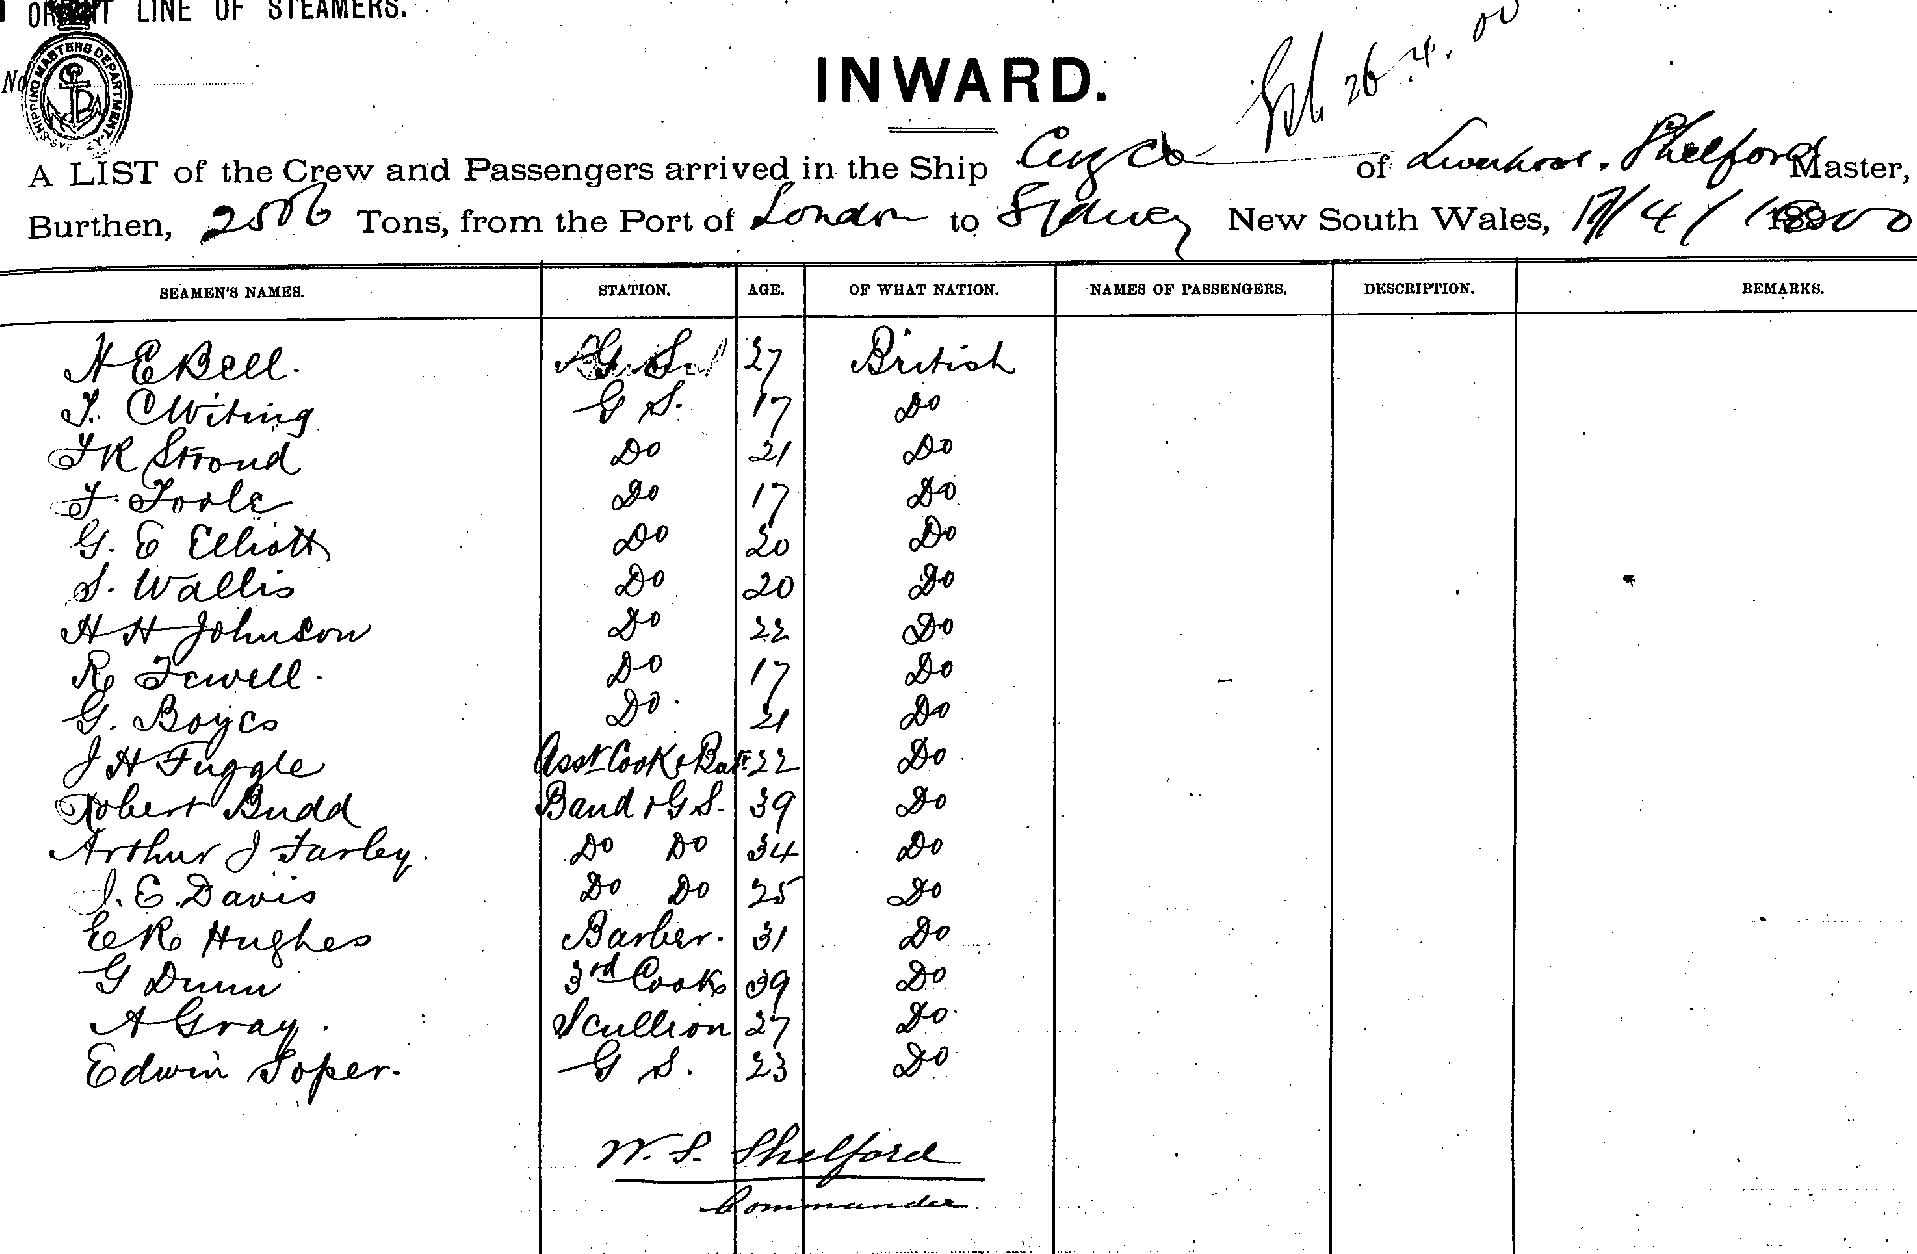 ORIENT LINE OF STEAMERS.
No
SHIPPING MASTERS DEPARTMENT.
INWARD.
26.4.00
A LIST of the Crew and Passengers arrived in the Ship Cuzco of Liverpool. Shelford Master,
Burthen, 2506 Tons, from the Port of London to Sydney New South Wales, 19/4/1900
SEAMEN'S NAMES. STATION. AGE. OF WHAT NATION. NAMES OF PASSENGERS. DESCRIPTION. REMARKS.
H E Bell. G S. 27 British
T. C Witing G S. 17 Do
F R Stroud Do 21 Do
F. Toole Do 17 Do
G. E Elliott Do 20 Do
S. Wallis Do 20 Do
H H Johnson Do 22 Do
R Jewell. Do 17 Do
G. Boyes Do. 21 Do
J H Fuggle Asst Cook & Bar 22 Do
Robert Budd Band & G S. 39 Do
Arthur J Farley. Do Do 34 Do
J. E. Davis Do Do 25 Do
E R Hughes Barber. 31 Do
G Dunn 3rd Cook 39 Do
A Gray. Scullion 27 Do.
Edwin Soper. G S. 23 Do
W. S. Shelford
Commander